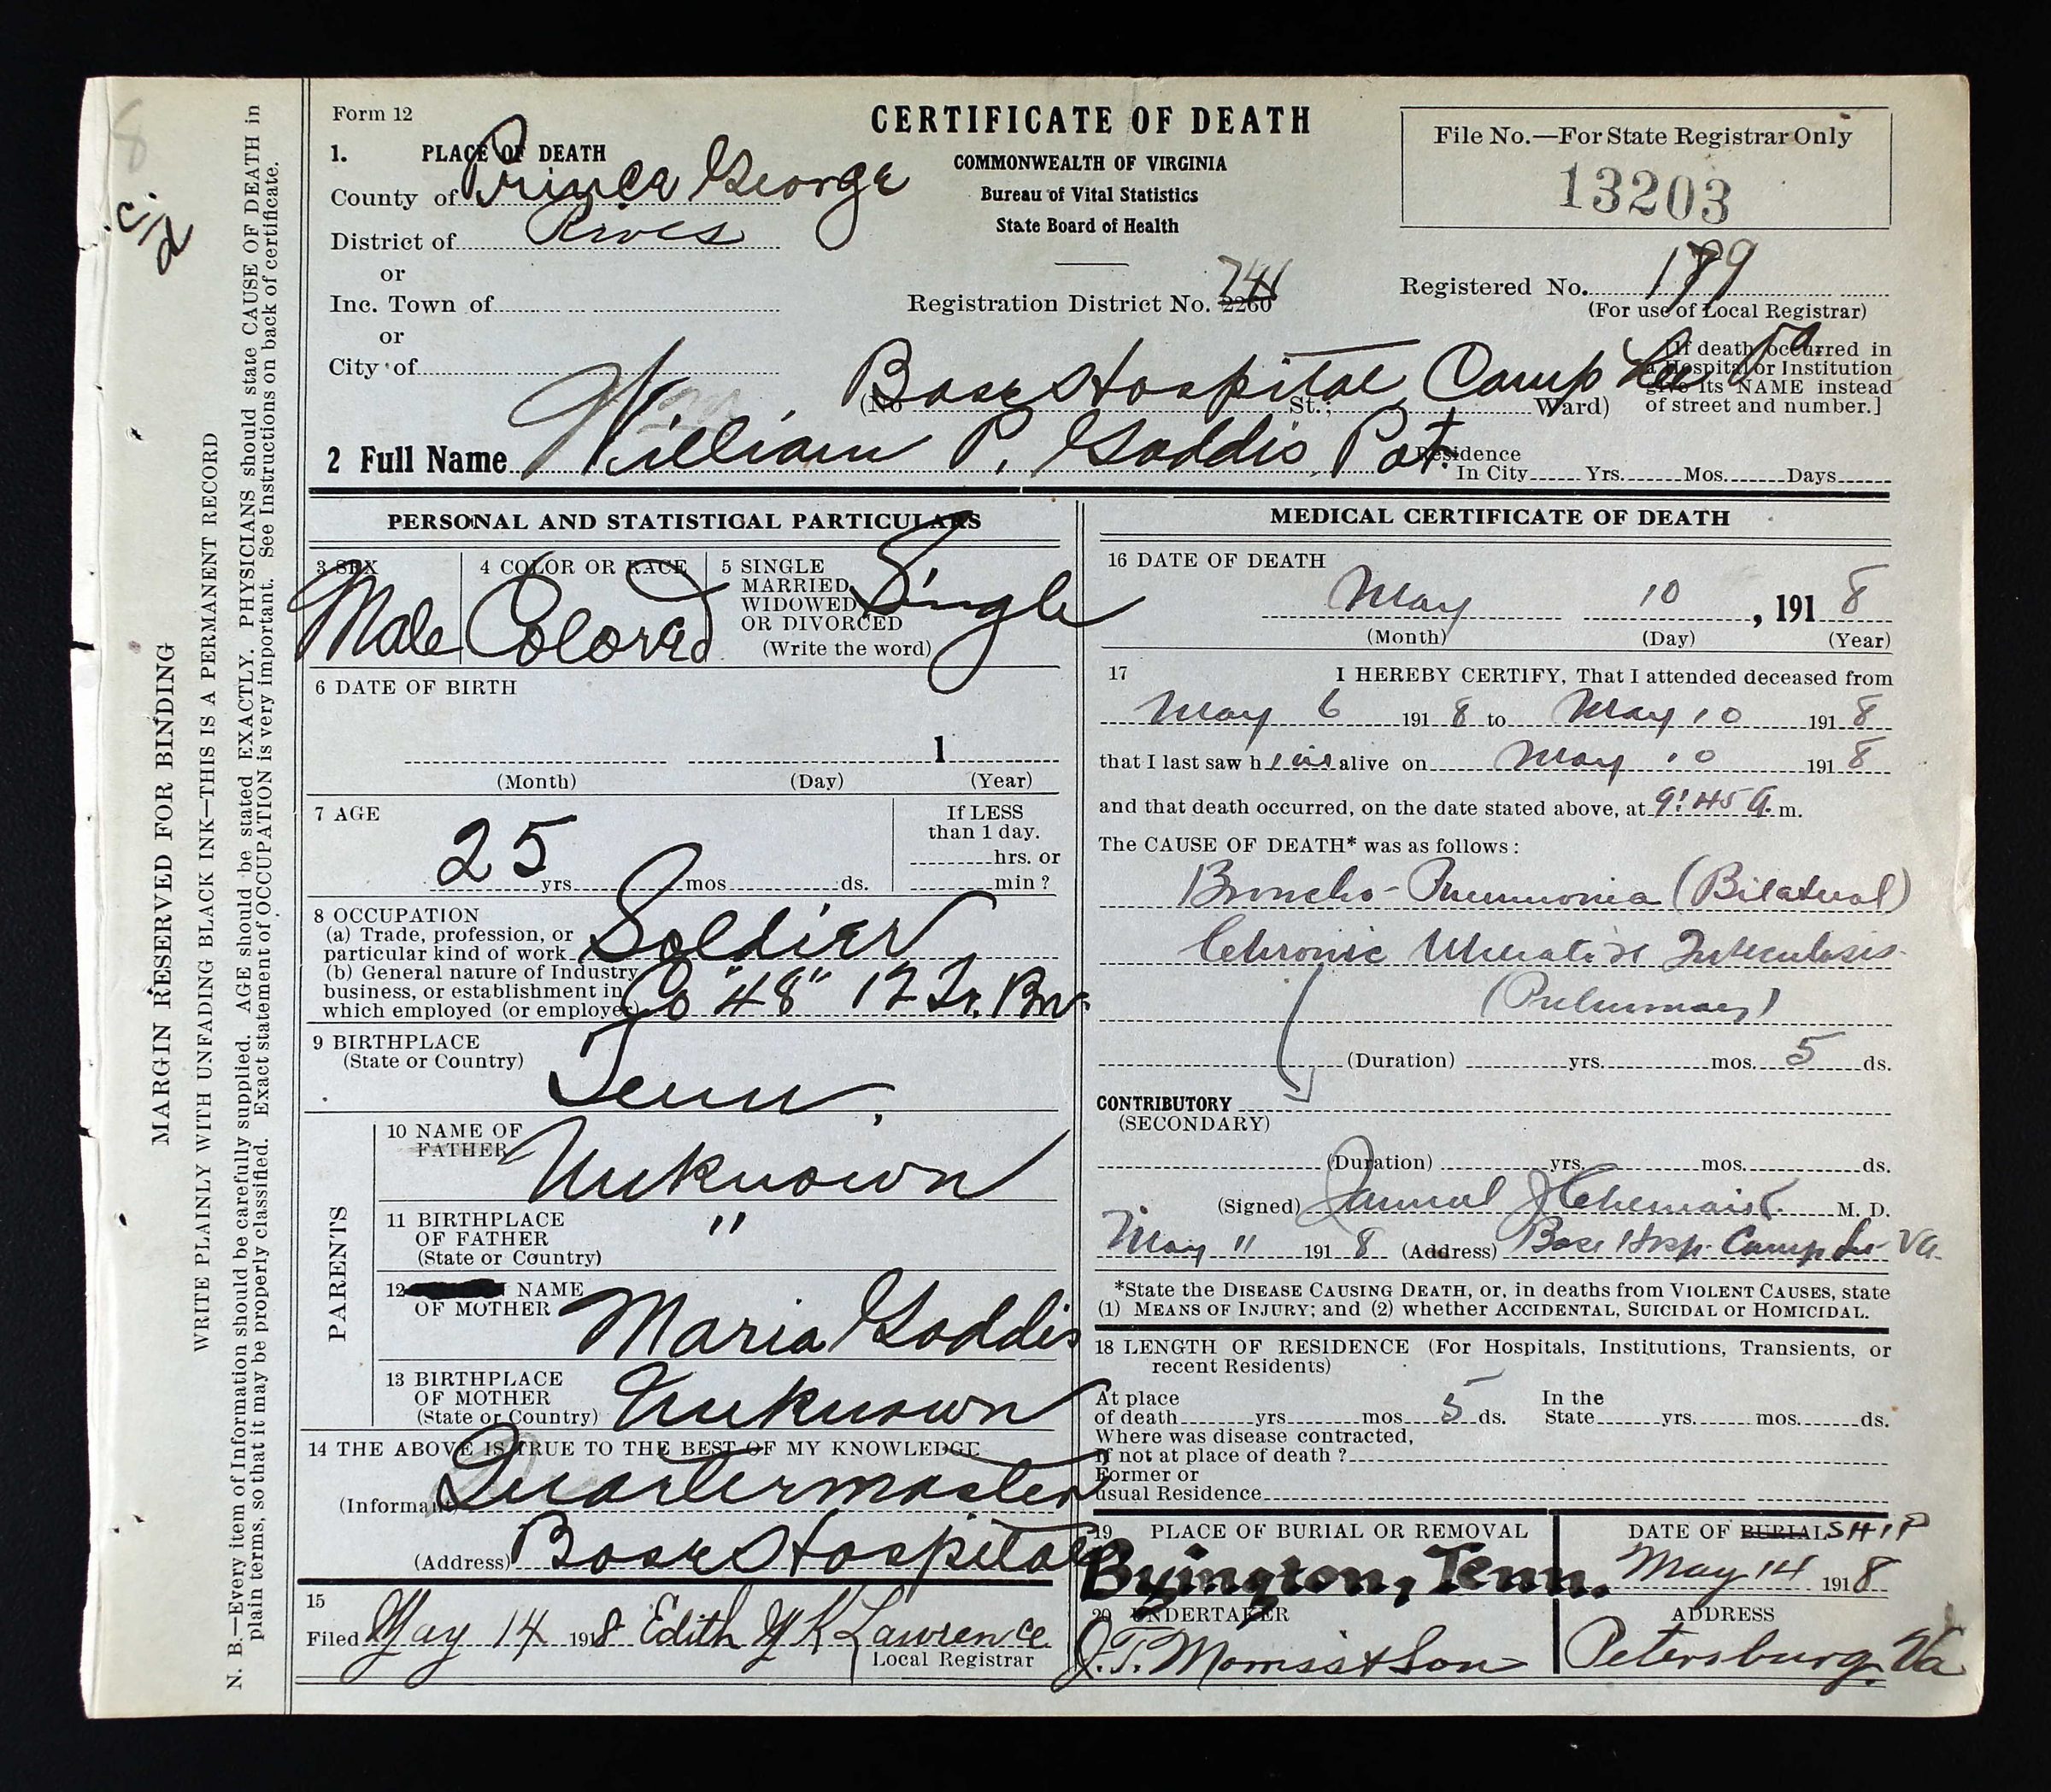 Form 12
CERTIFICATE OF DEATH
COMMONWEALTH OF VIRGINIA
Bureau of Vital Statistics
State Board of Health
File No.—For State Registrar Only
13203
1. PLACE OF DEATH
County of Prince George
District of Rives
or
Inc. Town of
or
City of
Registration District No. 2260 741
Registered No. 189
(For use of Local Registrar)
Base Hospital, Camp Lee Va
(No St.; Ward)
[If death occurred in
a Hospital or Institution
give its NAME instead
of street and number.]
2 Full Name William P. Goddis, Pvt.
Residence
In City Yrs. Mos. Days
PERSONAL AND STATISTICAL PARTICULARS
3 SEX
Male
4 COLOR OR RACE
Colored
5 SINGLE
MARRIED
WIDOWED
OR DIVORCED
(Write the word)
Single
6 DATE OF BIRTH
1
(Month) (Day) (Year)
7 AGE
25 yrs. mos. ds.
If LESS
than 1 day.
hrs. or
min?
8 OCCUPATION
(a) Trade, profession, or
particular kind of work Soldier
(b) General nature of Industry
business, or establishment in
which employed (or employer) Co "48" 12 Tr. Bn.
9 BIRTHPLACE
(State or Country)
Tenn.
PARENTS
10 NAME OF
FATHER
Unknown
11 BIRTHPLACE
OF FATHER
(State or Country)
"
12 NAME
OF MOTHER
Maria Goddis
13 BIRTHPLACE
OF MOTHER
(State or Country)
Unknown
14 THE ABOVE IS TRUE TO THE BEST OF MY KNOWLEDGE
(Informant) Quartermaster
(Address) Base Hospital
15
Filed May 14 1918 Edith K Lawrence
Local Registrar
MEDICAL CERTIFICATE OF DEATH
16 DATE OF DEATH
May 10, 1918
(Month) (Day) (Year)
17 I HEREBY CERTIFY, That I attended deceased from
May 6 1918 to May 10 1918
that I last saw him alive on May 10 1918
and that death occurred, on the date stated above, at 9:45 A. m.
The CAUSE OF DEATH* was as follows:
Broncho-Pneumonia (Bilateral)
Chronic Ulcerative Tuberculosis
(Pulmonary)
(Duration) yrs. mos. 5 ds.
CONTRIBUTORY
(SECONDARY)
(Duration) yrs. mos. ds.
(Signed) M. D.
May 11 1918 (Address) Base Hosp. Camp Lee Va.
*State the DISEASE CAUSING DEATH, or, in deaths from VIOLENT CAUSES, state
(1) MEANS OF INJURY; and (2) whether ACCIDENTAL, SUICIDAL or HOMICIDAL.
18 LENGTH OF RESIDENCE (For Hospitals, Institutions, Transients, or
recent Residents)
At place
of death yrs. mos. 5 ds.
In the
State yrs. mos. ds.
Where was disease contracted,
if not at place of death?
Former or
usual Residence
19 PLACE OF BURIAL OR REMOVAL
Byington, Tenn.
DATE OF BURIAL SHIP
May 14 1918
20 UNDERTAKER
J.T. Morriss & Son
ADDRESS
Petersburg, Va
MARGIN RESERVED FOR BINDING
WRITE PLAINLY WITH UNFADING BLACK INK—THIS IS A PERMANENT RECORD
N. B.—Every item of Information should be carefully supplied. AGE should be stated EXACTLY. PHYSICIANS should state CAUSE OF DEATH in
plain terms, so that it may be properly classified. Exact statement of OCCUPATION is very important. See Instructions on back of certificate.